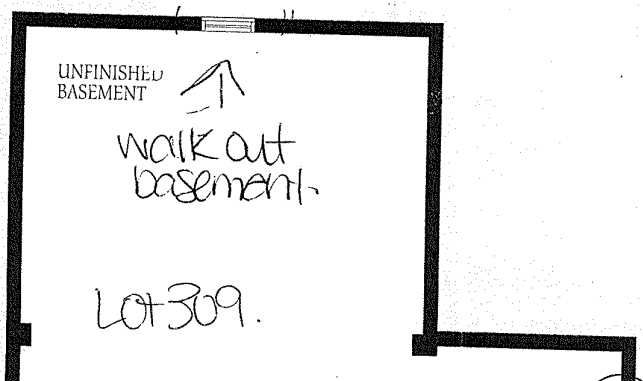 UNFINISHED
BASEMENT
walk out
basement.
Lot 309.